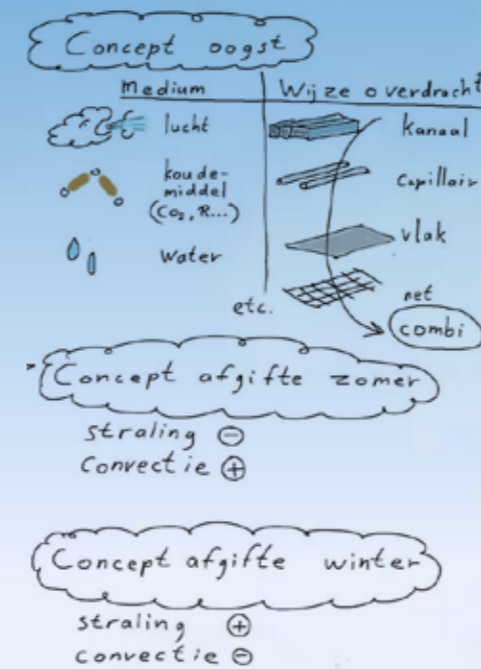 Concept oogst
Medium
Wijze overdracht
lucht
kanaal
koude-
middel
(CO₂, R...)
capillair
water
vlak
etc.
net
combi
Concept afgifte zomer
straling ⊖
Convectie ⊕
Concept afgifte winter
straling ⊕
convectie ⊖